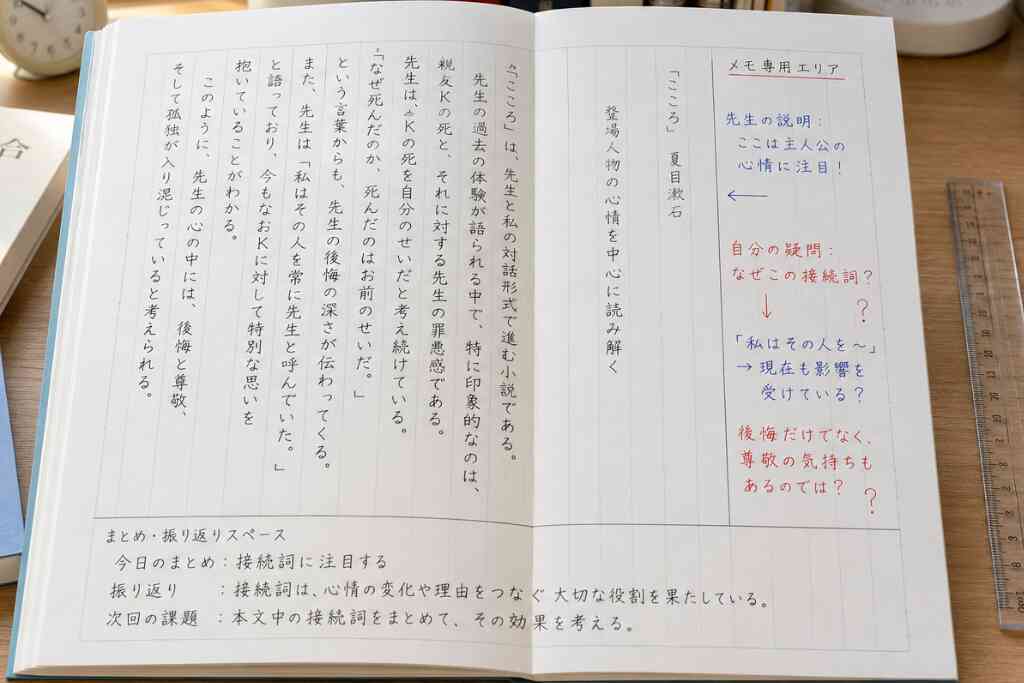 「こころ」 夏目漱石
登場人物の心情を中心に読み解く
「こころ」は、先生と私の対話形式で進む小説である。
先生の過去の体験が語られる中で、特に印象的なのは、
親友Kの死と、それに対する先生の罪悪感である。
先生は、Kの死を自分のせいだと考え続けている。
「なぜ死んだのか、死んだのはお前のせいだ。」
という言葉からも、先生の後悔の深さが伝わってくる。
また、先生は「私はその人を常に先生と呼んでいた。」
と語っており、今もなおKに対して特別な思いを
抱いていることがわかる。
このように、先生の心の中には、後悔と尊敬、
そして孤独が入り混じっていると考えられる。
メモ専用エリア
先生の説明:
ここは主人公の
心情に注目!
←
自分の疑問:
なぜこの接続詞?
↓ ?
「私はその人を～」
→現在も影響を
受けている?
後悔だけでなく、
尊敬の気持ちも
あるのでは? ?
まとめ・振り返りスペース
今日のまとめ:接続詞に注目する
振り返り :接続詞は、心情の変化や理由をつなぐ大切な役割を果たしている。
次回の課題 :本文中の接続詞をまとめて、その効果を考える。
合